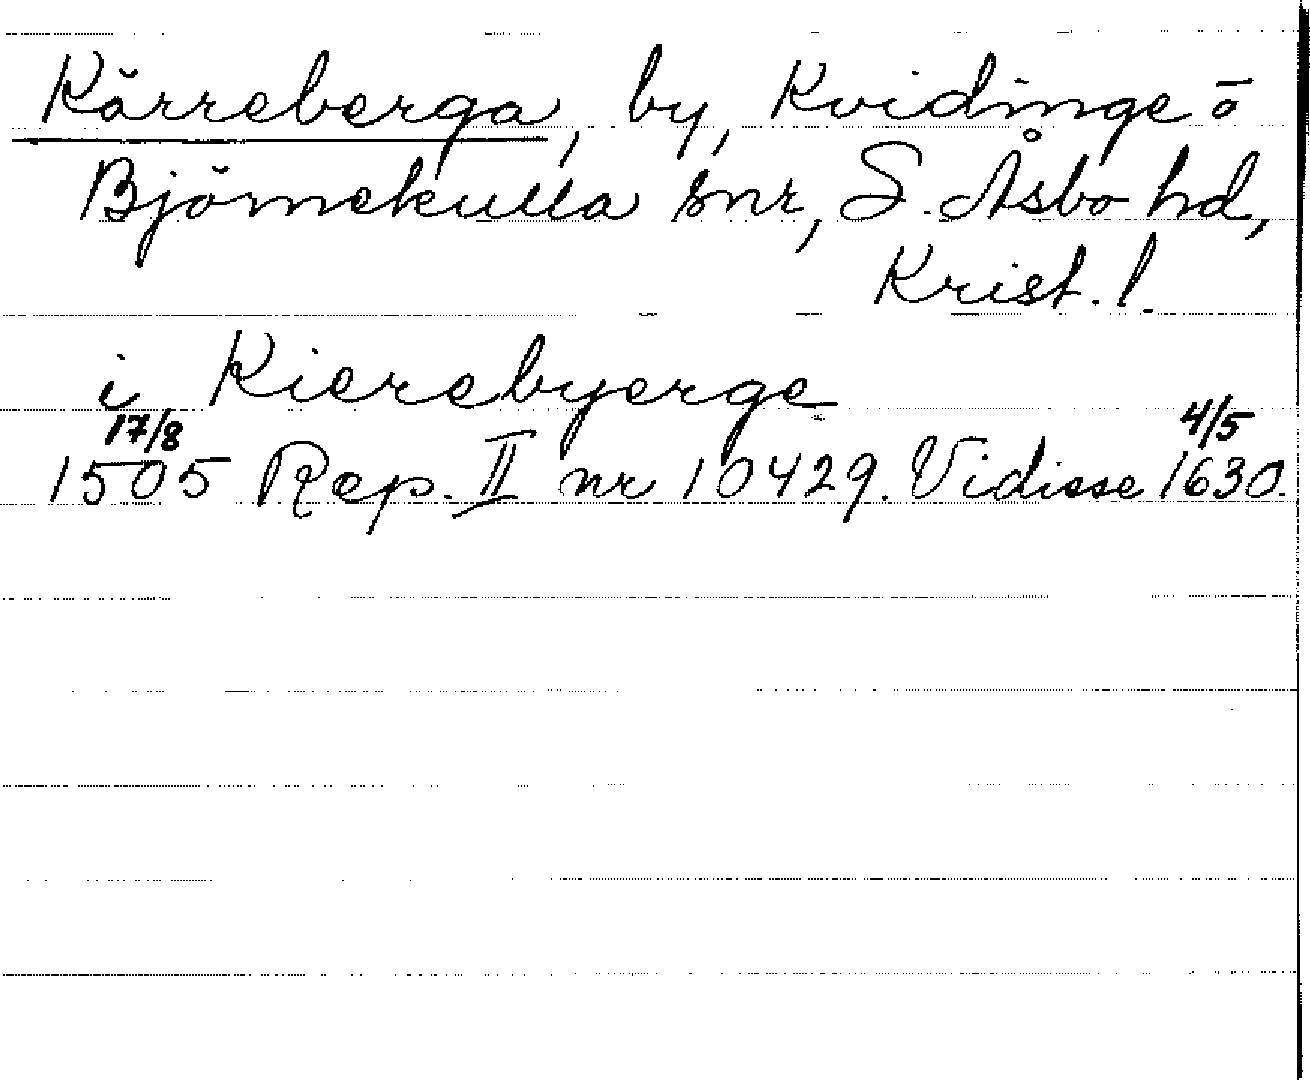 Kärreberga, by, Kvidinge o
Björnekulla snr, S. Åsbo hd,
Krist. l.
i Kierebyerge
17/8 4/5
1505 Rep. II nr 10429. Vidisse 1630.